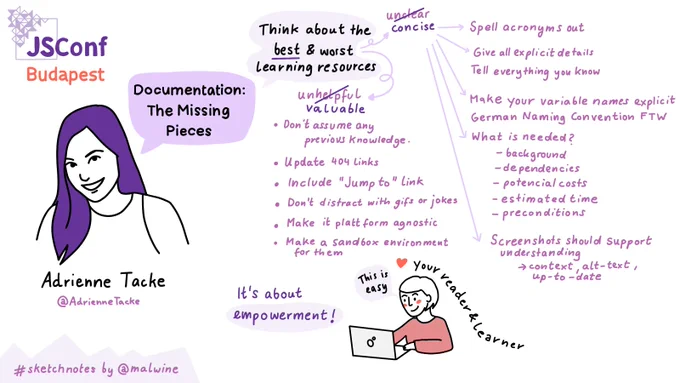 JSConf
Budapest
Documentation:
The Missing
Pieces
Adrienne Tacke
@AdrienneTacke
Think about the
best & worst
learning resources
unhelpful
valuable
• Don't assume any
previous knowledge.
• Update 404 links
• Include "Jump to" link
• Don't distract with gifs or jokes
• Make it plattform agnostic
• Make a sandbox environment
for them
unclear
concise
Spell acronyms out
Give all explicit details
Tell everything you know
Make your variable names explicit
German Naming Convention FTW
What is needed?
- background
- dependencies
- potencial costs
- estimated time
- preconditions
Screenshots should support
understanding
→ context, alt-text,
up-to-date
It's about
empowerment!
This is
easy
Your reader & learner
#sketchnotes by @malwine